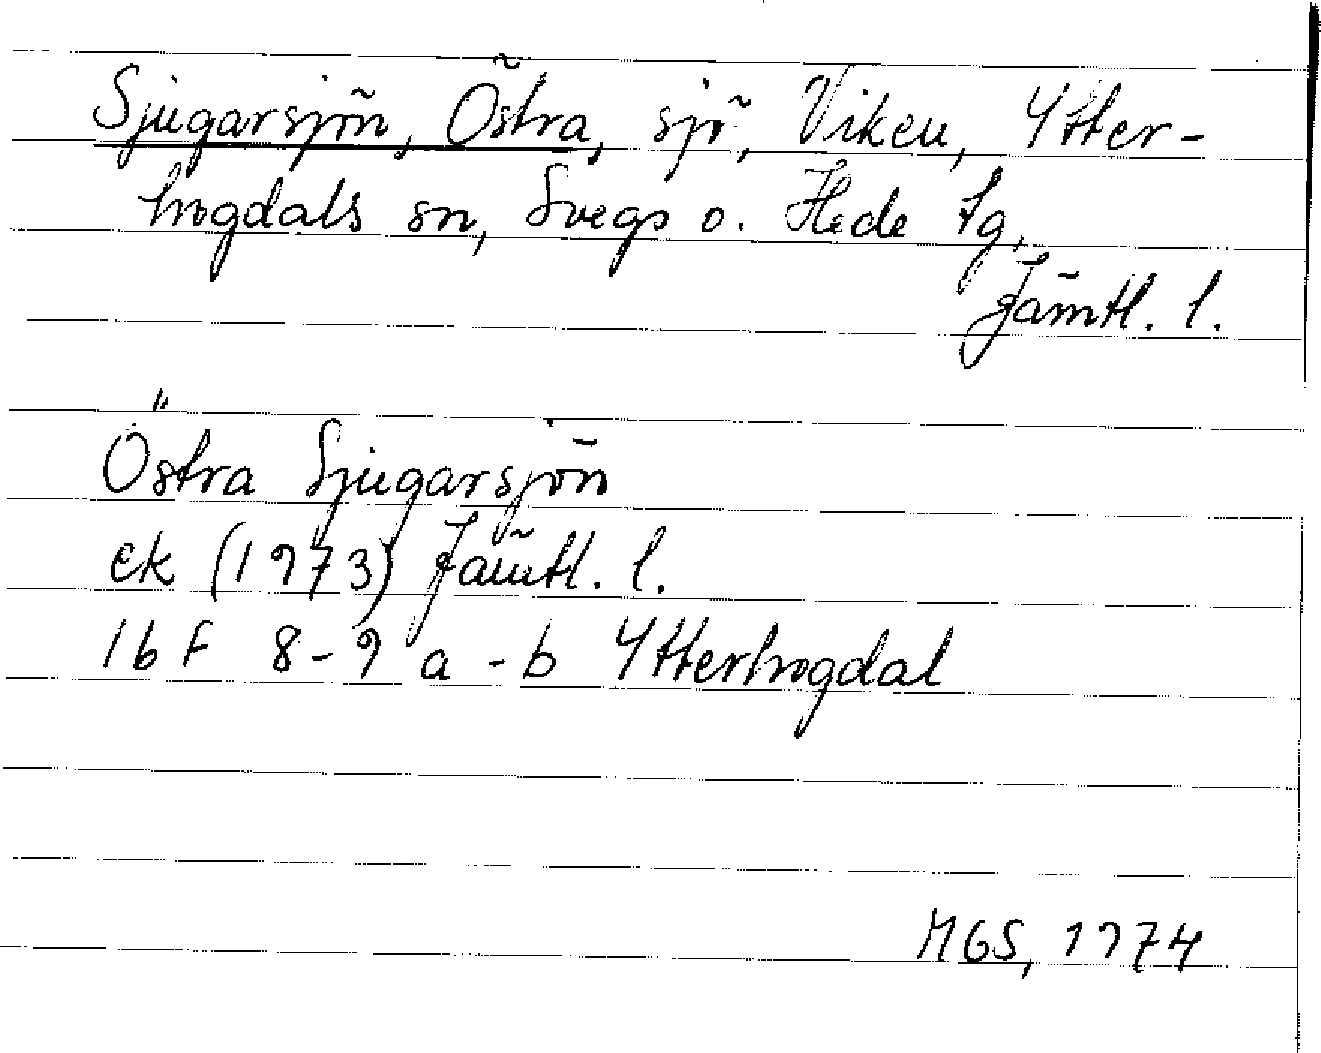 Sjugarsjön, Östra, sjö, Viken, Ytter-
hogdals sn, Svegs o. Hede tg,
Jämtl. l.
Östra Sjugarsjön
ek (1973) Jämtl. l.
16F 8-9 a-b Ytterhogdal
MGS, 1974